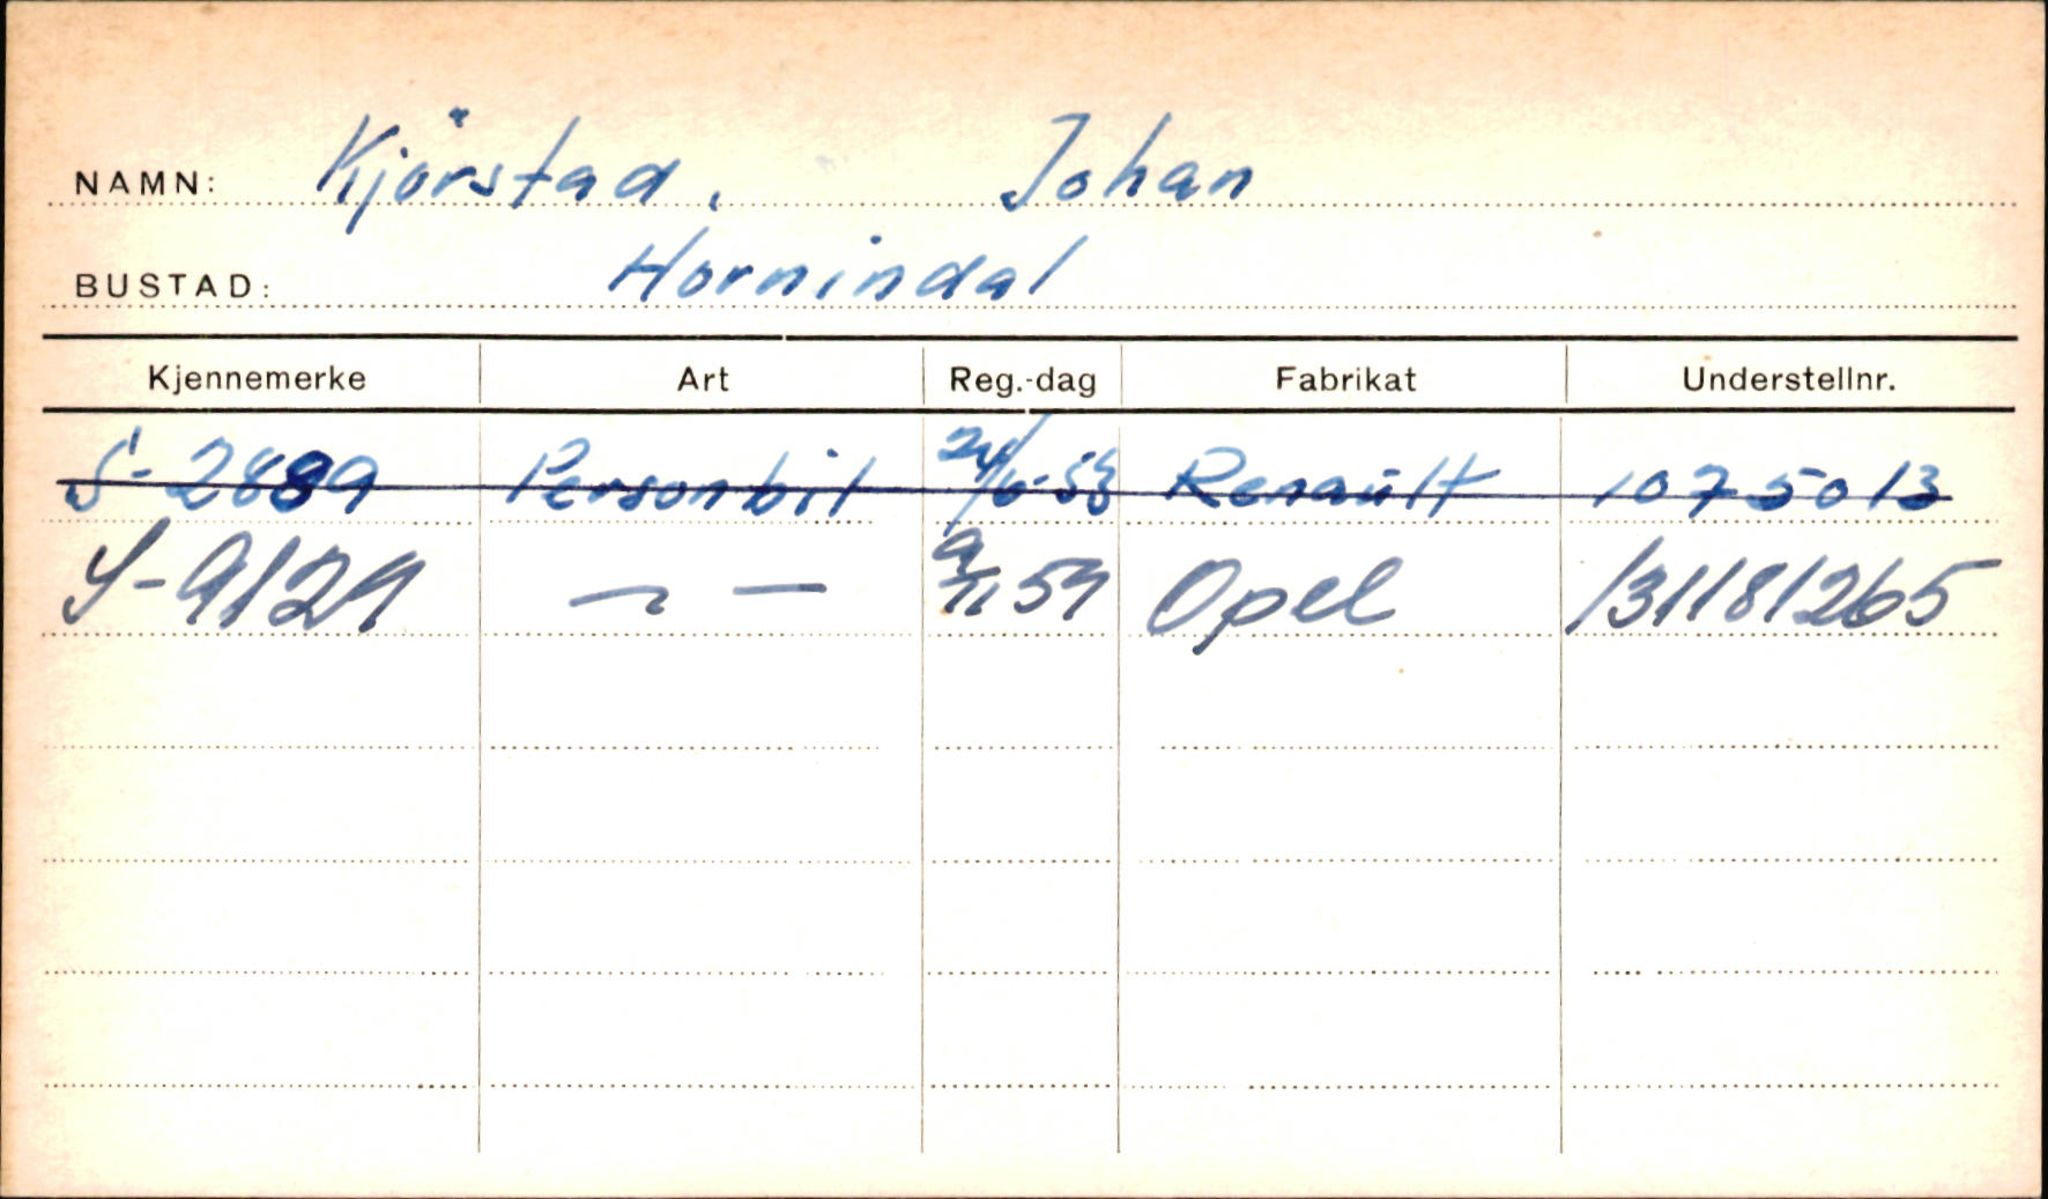 NAMN: Kjörstad, Johan
BUSTAD: Hornindal
Kjennemerke Art Reg.-dag Fabrikat Understellnr.
S-2889 Personbil 24/6-53 Renault 1075013
S-9129 — " — 9/11 59 Opel 131181265